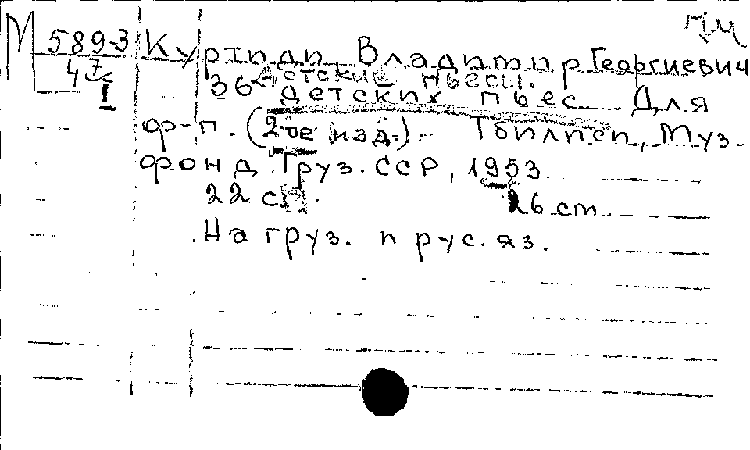 М 5893 Куртиди Владимир Георгиевич
4
I
36 Детские пьесы.
детских пьес. Для
ф-п. (2-ое изд.). Тбилиси, Муз.
фонд Груз. ССР, 1953
22 с. 26 cm
На груз. и рус. яз.